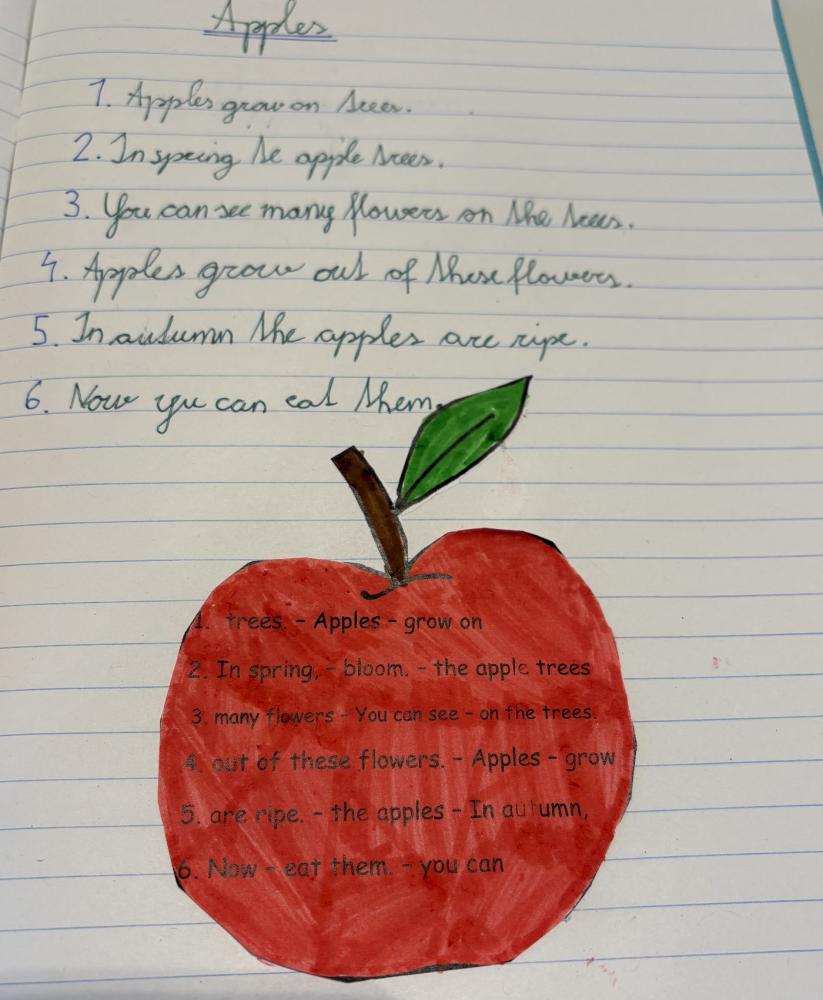 Apples
1. Apples grow on trees.
2. In spring te apple trees.
3. You can see many flowers on the trees.
4. Apples grow out of these flowers.
5. In autumn the apples are ripe.
6. Now you can eat them.
1. trees. – Apples – grow on
2. In spring, – bloom. – the apple trees
3. many flowers – You can see – on the trees.
4. out of these flowers. – Apples – grow
5. are ripe. – the apples – In autumn,
6. Now – eat them. – you can